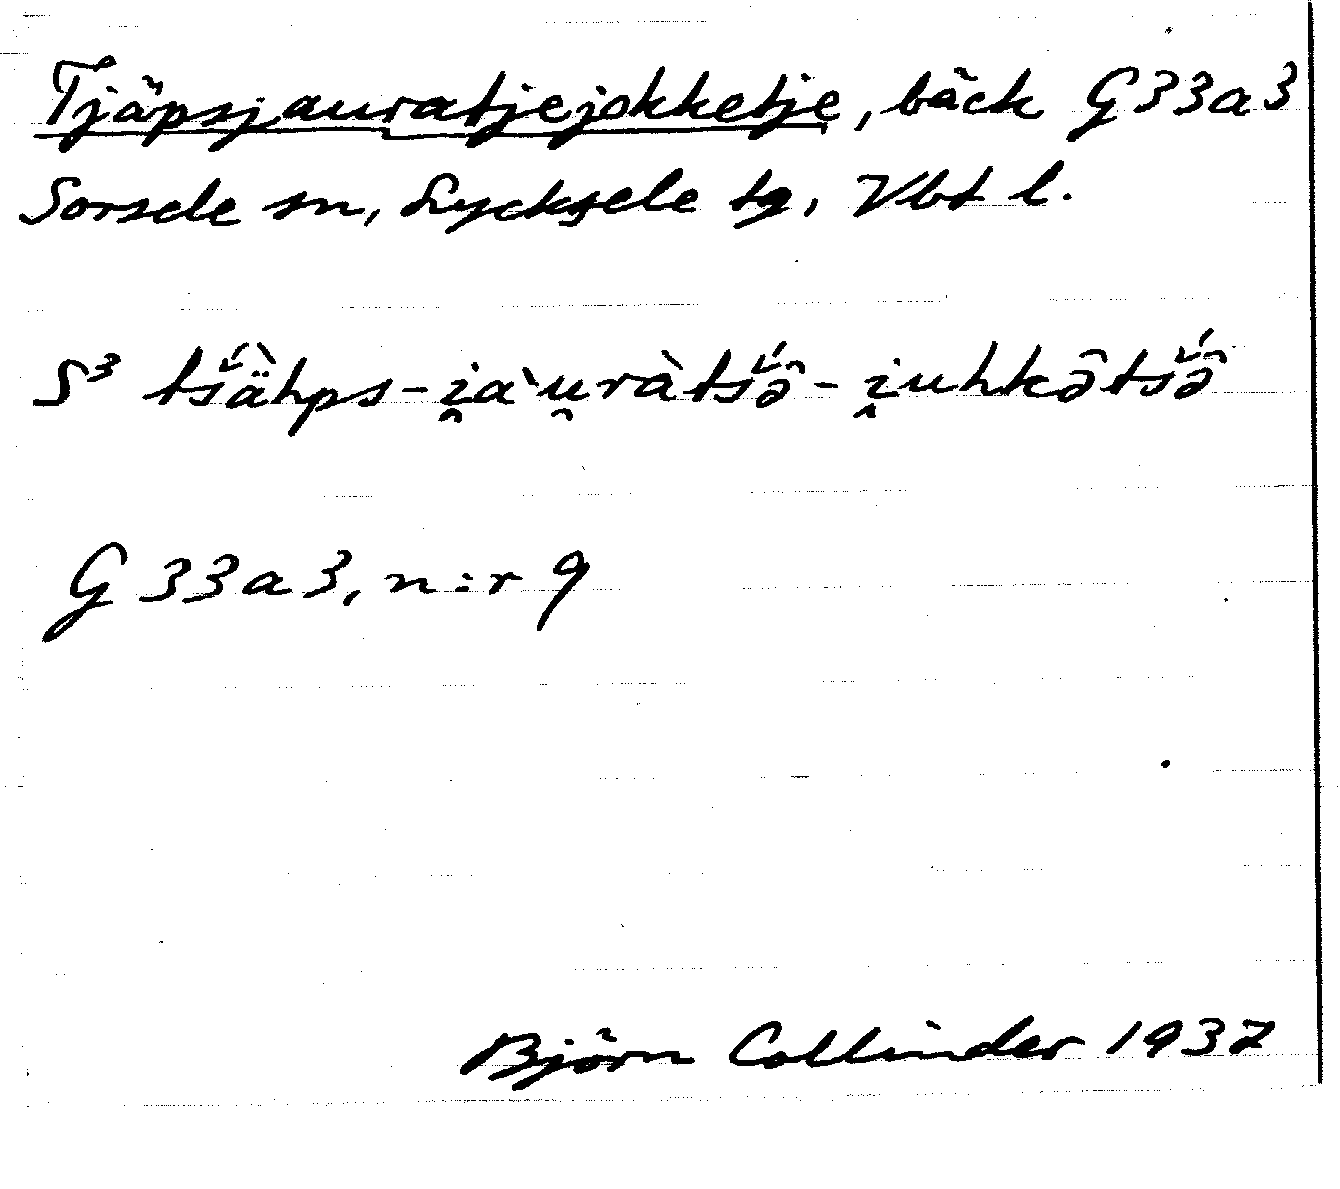 Tjäpsjauratjejokketje, bäck G33a3
Sorsele sn, Lycksele tg, Vbt l.
S³ tš́ä̀hps-i̯a`u̯ràtš́ə̑-i̯uhkə̑tš́ə̑
G 33a3, n:r 9
Björn Collinder 1937